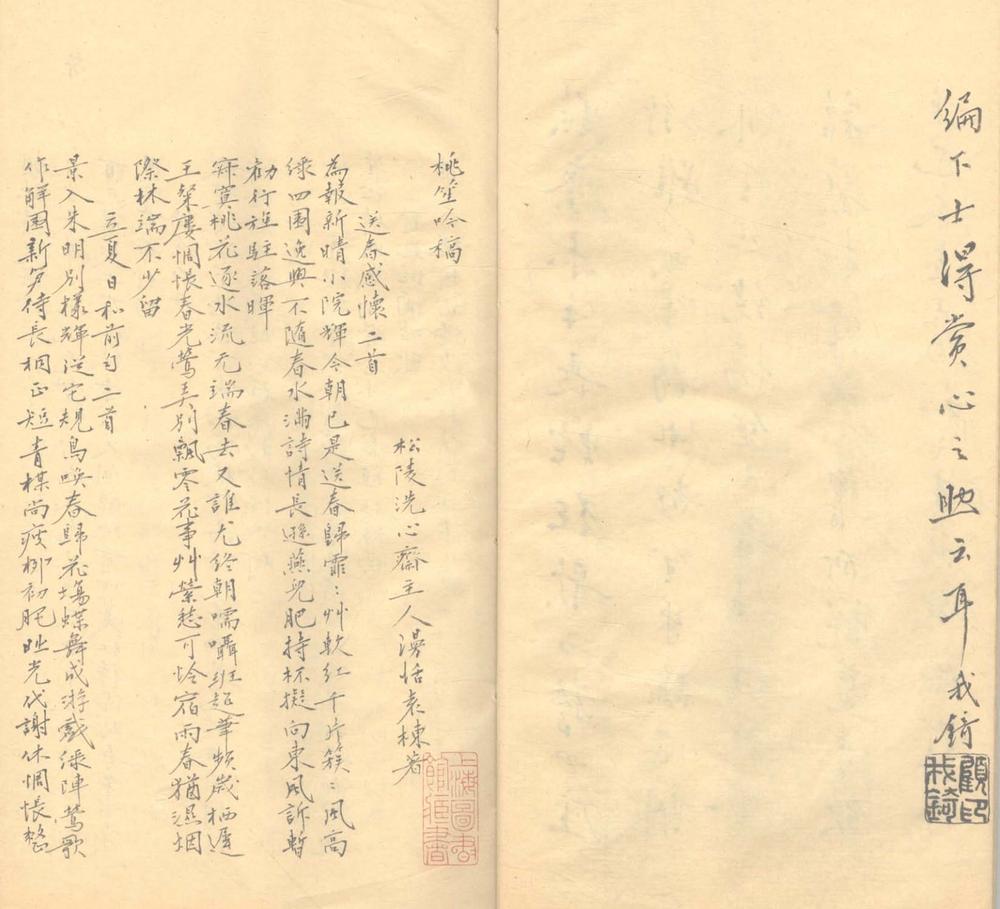 編下士得賞心之助云耳我錡
顧我錡印
桃笙吟稿
松陵洗心齋主人漫恬袁棟著
送春感懷二首
為報新晴小院輝今朝已是送春歸霏〻艸軟紅千片簇〻風高
綠四圍逸興不隨春水滿詩情長遜燕兒肥持杯擬向東風訴暫
勸行旌駐落暉
寂寞桃花逐水流无端春去又誰尤終朝嚅囁班超筆頻歲栖遲
王粲廔惆悵春光鶯弄別飄零花事艸縈愁可怜宿雨春猶濕烟
際林端不少留
立夏日和前匀二首
景入朱明別樣輝從它規鳥喚春歸花塲蝶舞成游戲綠陣鶯歌
作解圍新笋侍長桐正短青楳尚瘦柳初肥眡光代謝休惆悵整
上海圖書館藏書